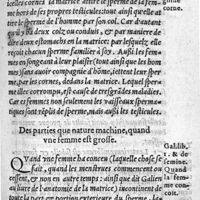 icelles cornes la matrice attire le sperme de sa femme
hors de ses propres testicules: tout ainsi qu'elle at
tire le sperme de l'homme par son col. Car d'autant
qu'il y ha deux colz ou conduis, & par maniere de
dire deux estomachs en la matrice: par lesquelz
reçoit chacun sperme familier à soy. Aussi les fem
mes en songeant à leur plaisir (tout ainsi que les hom
mes) sans avoir compagnie d'homme, iettent leur sper
me, par les cornes, dedans la matrice. Lequel sperme
est corrompu, est cause de tresgrâdes maladies.
Car es femmes non seulement les vaisseaux sperma-
tiques sont rēplis de sperme, mais aussi les testicules.
Des parties que nature machine, quand
vne femme est grosse.
Quand vne femme ha conceu (laquelle chose se
fait, quand les menstrues commencent ou
cessent, & non en autre temps: ainsi que dit Galien
au liure de l'anatomie de la matrice) incontinent de
toute la partie exterieure du sperme
corne.
Gal. lib.
1. & de
semine.
Quand
la fem-
me con-
çoit.